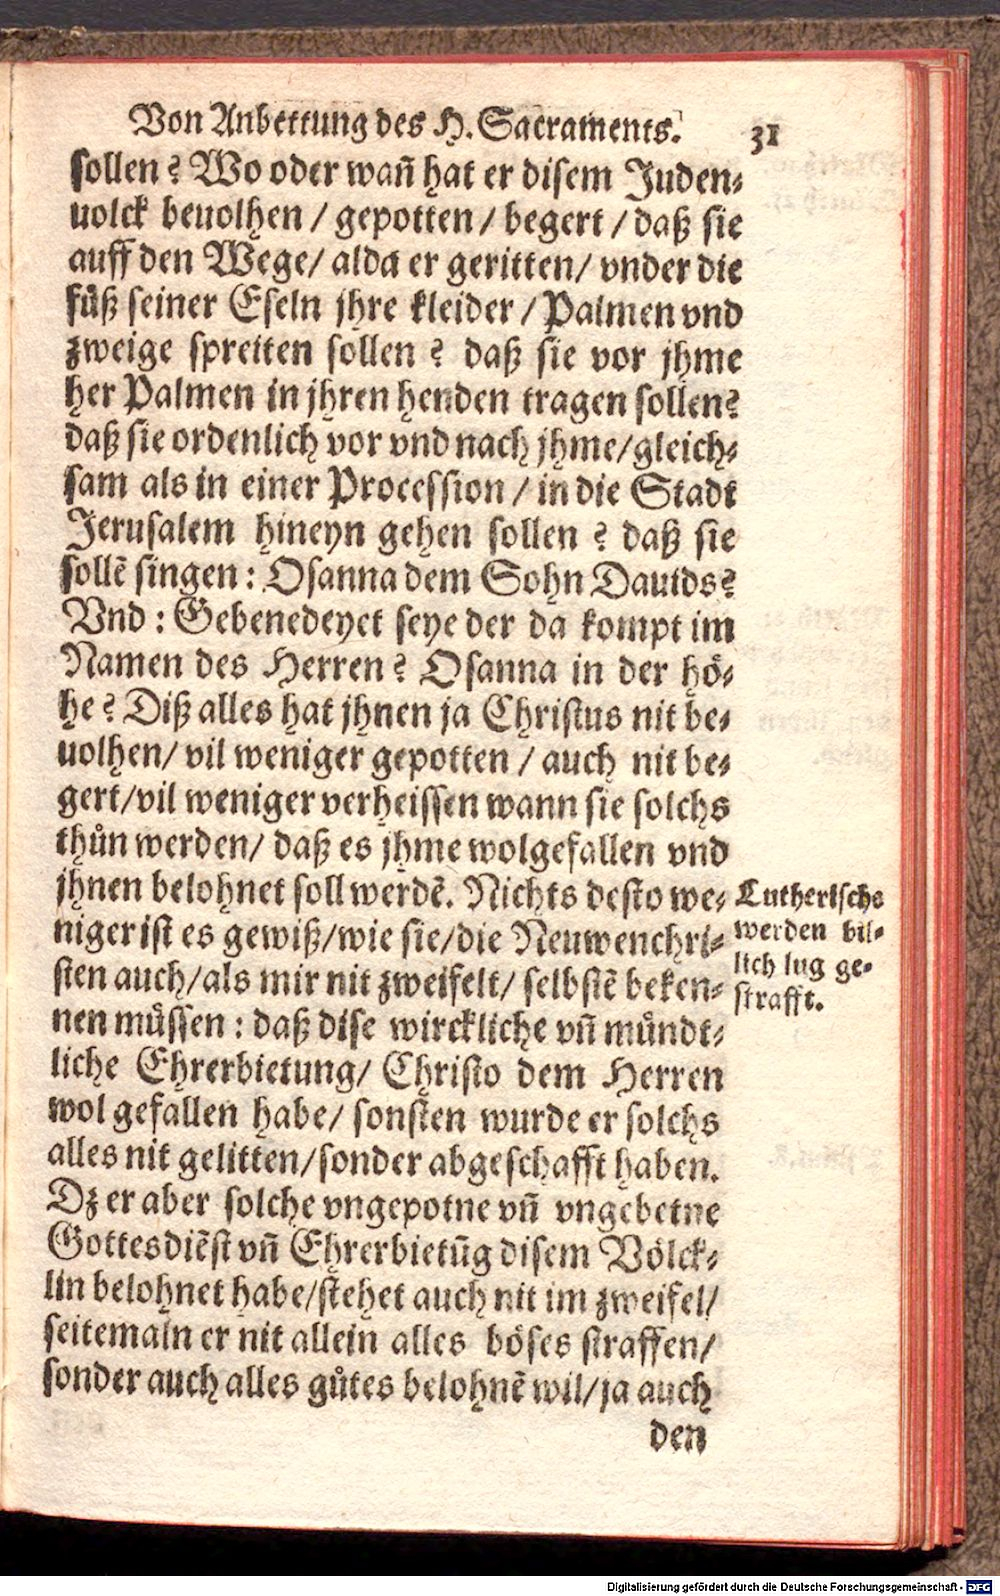 Von Anbettung des H. Sacraments. 31
sollen? Wo oder wañ hat er disem Juden-
uolck beuolhen / gepotten / begert / daß sie
auff den Wege / alda er geritten / vnder die
fuͤß seiner Eseln jhre kleider / Palmen vnd
zweige spreiten sollen? daß sie vor jhme
her Palmen in jhren henden tragen sollen?
daß sie ordenlich vor vnd nach jhme / gleich-
sam als in einer Procession / in die Stadt
Jerusalem hineyn gehen sollen? daß sie
sollẽ singen: Osanna dem Sohn Dauids?
Vnd: Gebenedeyet seye der da kompt im
Namen des Herren? Osanna in der hoͤ-
he? Diß alles hat jhnen ja Christus nit be-
uolhen / vil weniger gepotten / auch nit be-
gert / vil weniger verheissen wann sie solchs
thůn werden / daß es jhme wolgefallen vnd
jhnen belohnet soll werdẽ. Nichts desto we-
niger ist es gewiß / wie sie / die Neuwenchri-
sten auch / als mir nit zweifelt / selbstẽ beken-
nen muͤssen: daß dise wirckliche vñ muͤndt-
liche Ehrerbietung / Christo dem Herren
wol gefallen habe / sonsten wurde er solchs
alles nit gelitten / sonder abgeschafft haben.
Dz er aber solche vngepotne vñ vngebetne
Gottesdiẽst vñ Ehrerbietũg disem Voͤlck-
lin belohnet habe / stehet auch nit im zweifel /
seitemaln er nit allein alles boͤses straffen /
sonder auch alles gůtes belohnẽ wil / ja auch
den
Lutherische
werden bil-
lich lug ge-
strafft.
Digitalisierung gefördert durch die Deutsche Forschungsgemeinschaft - DFG